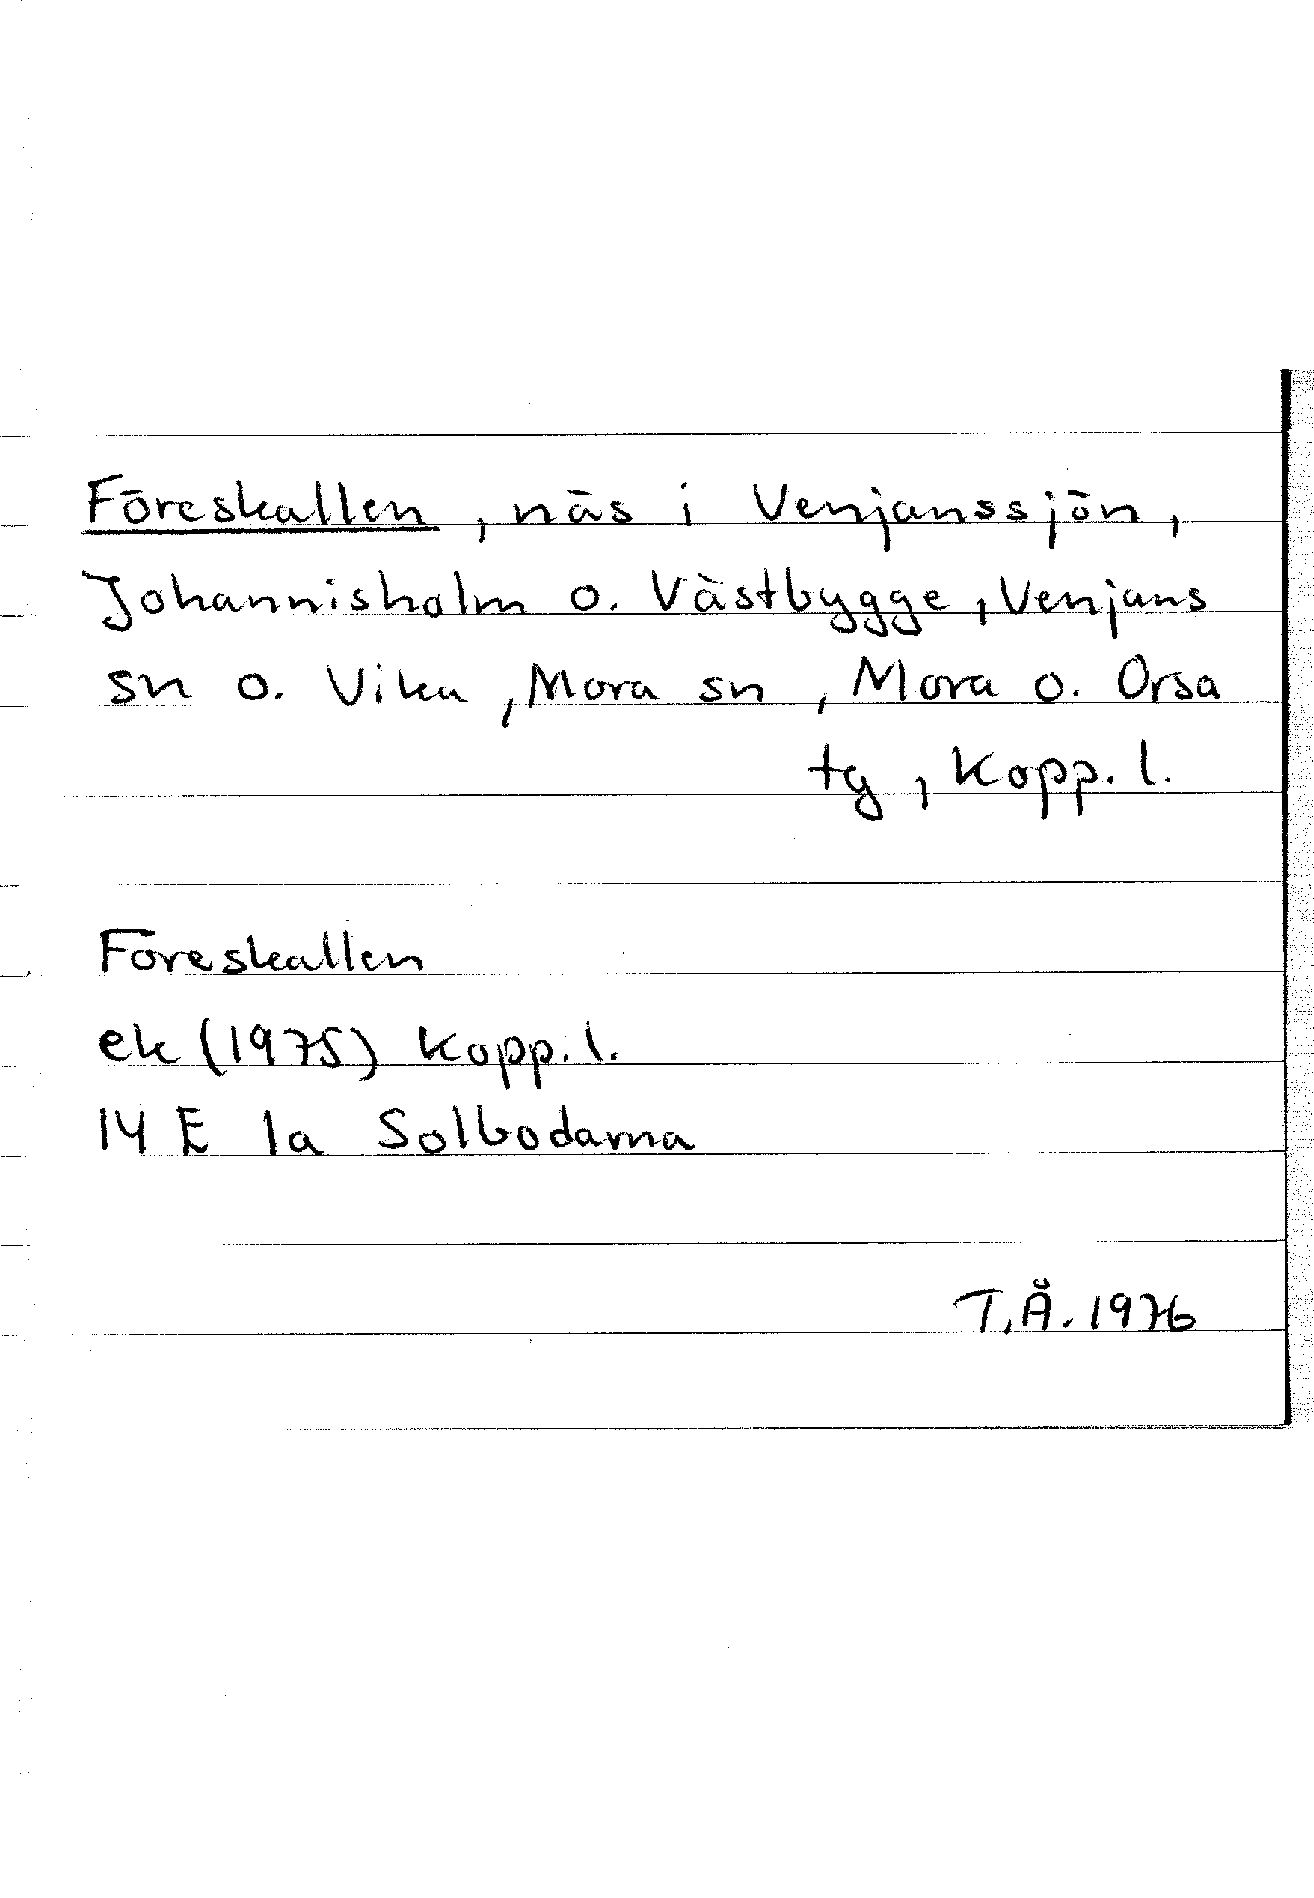 Föreskallen, näs i Venjanssjön,
Johannisholm o. Västbygge, Venjans
sn o. Vika, Mora sn, Mora o. Orsa
tg, Kopp. l.
Föreskallen
ek (1975) Kopp. l.
14 E 1a Solbodarna
T.Å. 1976